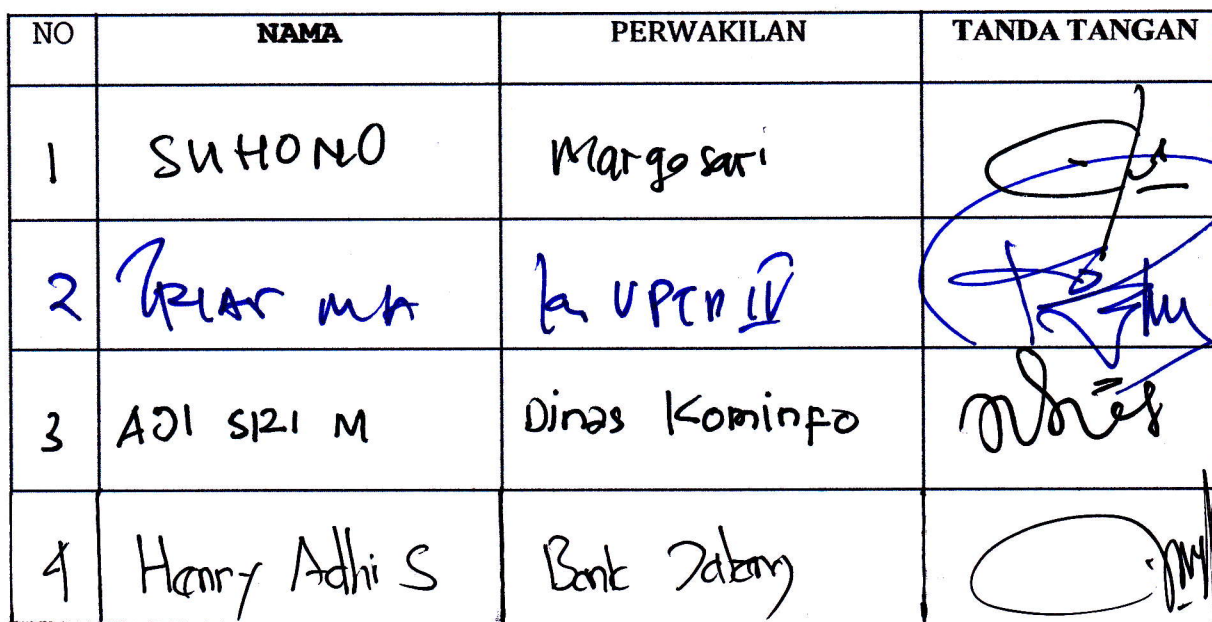 NO NAMA PERWAKILAN TANDA TANGAN
1 SUHONO Margosari
2 MA UPTD IV
3 AJI SRI M Dinas Kominfo
4 Henry Adhi S Bank Jateng